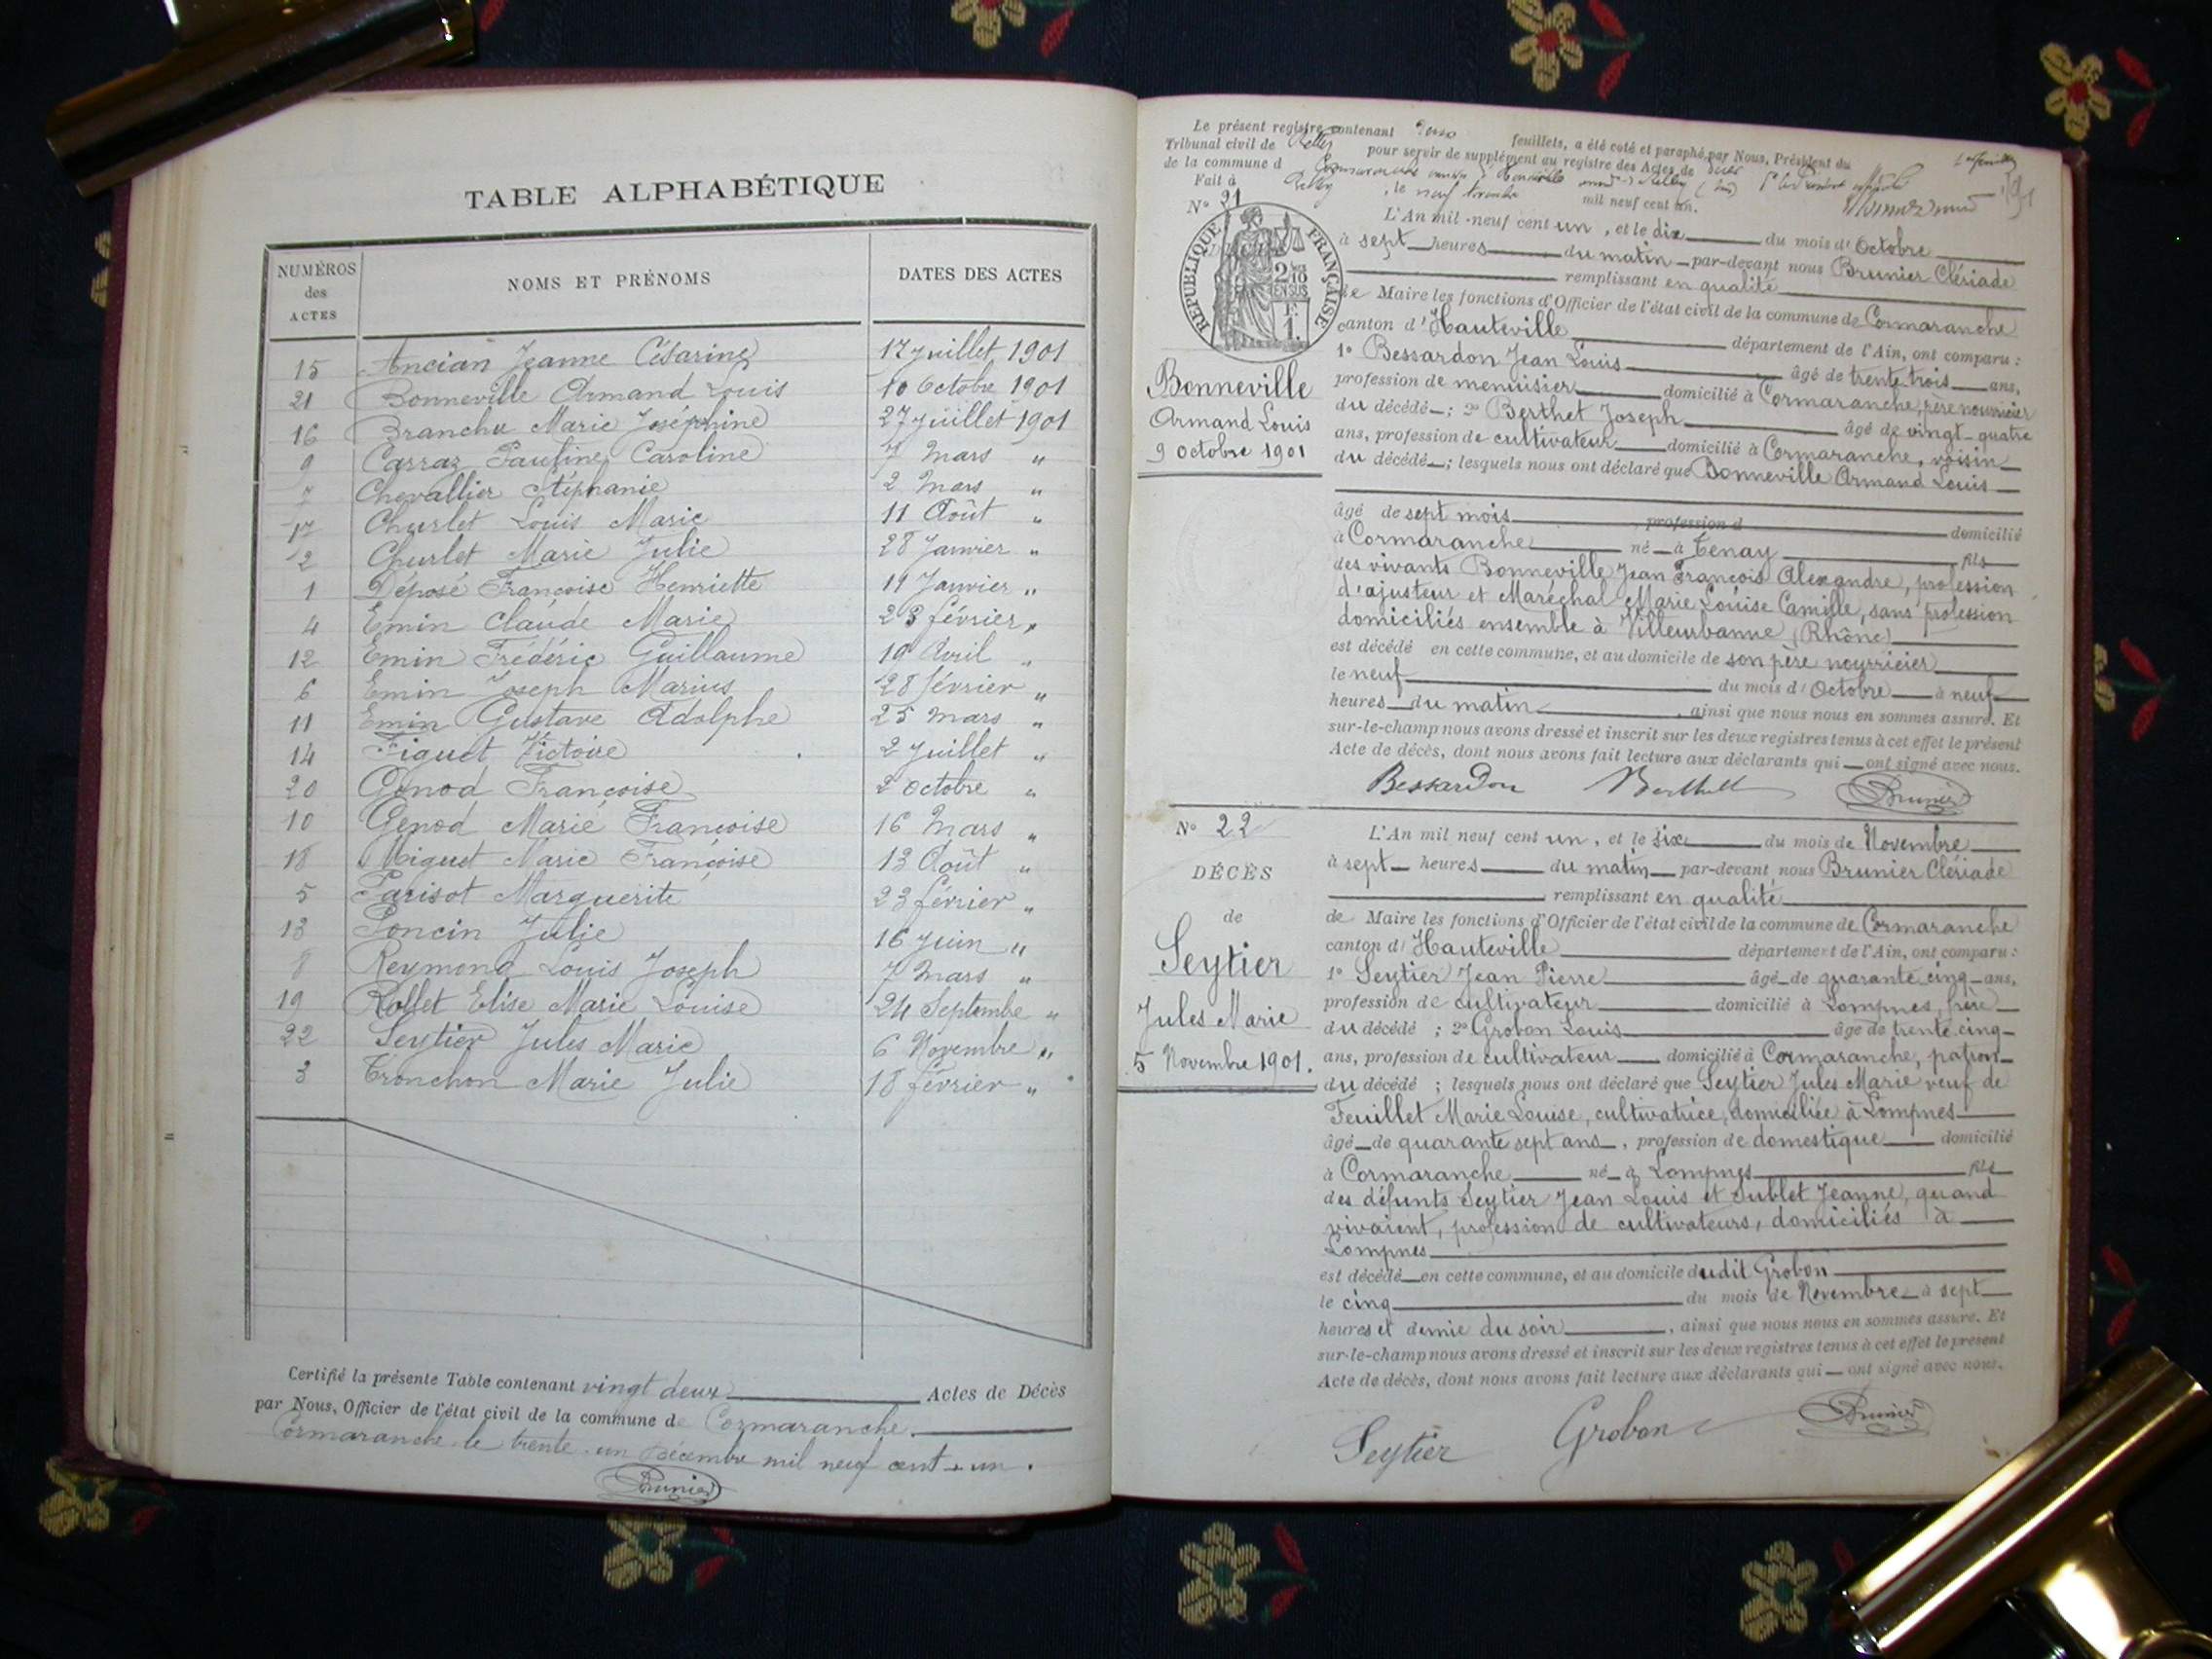 TABLE ALPHABÉTIQUE
NUMÉROS des ACTES NOMS ET PRÉNOMS DATES DES ACTES
15 Ancian Jeanne Césarine 17 Juillet 1901
21 Bonneville Armand Louis 10 Octobre 1901
16 Branche Marie Joséphine 27 Juillet 1901
9 Carraz Pauline Caroline 7 Mars "
7 Chevallier Stéphanie 2 Mars "
17 Churlet Louis Marie 11 Août "
2 Churlet Marie Julie 28 Janvier "
1 Déposé Françoise Henriette 11 Janvier "
4 Emin Claude Marie 23 février "
12 Emin Frédéric Guillaume 19 Avril "
6 Emin Joseph Marius 28 février "
11 Emin Gustave Adolphe 25 Mars "
14 Figuet Victoire 2 Juillet "
20 Genod Françoise 2 Octobre "
10 Genod Marie Françoise 16 Mars "
18 Miguet Marie Françoise 13 Août "
5 Parisot Marguerite 23 février "
13 Poncin Julie 16 Juin "
8 Reymond Louis Joseph 7 Mars "
19 Rollet Elise Marie Louise 24 Septembre "
22 Seytier Jules Marie 6 Novembre "
3 Tronchon Marie Julie 18 février "
Certifié la présente Table contenant vingt deux Actes de Décès
par Nous, Officier de l'état civil de la commune de Cormaranche.
Cormaranche le trente-un Décembre mil neuf cent un.
Brunier
Le présent registre contenant feuillets, a été coté et paraphé par Nous, Président du
Tribunal civil de Belley pour servir de supplément au registre des Actes de Décès
de la commune d Cormaranche
Fait à Belley, le neuf mil neuf cent un.
N° 21
RÉPUBLIQUE FRANÇAISE
2/10 EN SUS
F. 1.
Bonneville
Armand Louis
9 Octobre 1901
L'An mil neuf cent un, et le dix du mois d'Octobre
à sept heures du matin par-devant nous Brunier Clériade
remplissant en qualité
de Maire les fonctions d'Officier de l'état civil de la commune de Cormaranche
canton d'Hauteville département de l'Ain, ont comparu :
1° Bessardon Jean Louis âgé de trente trois ans,
profession de menuisier domicilié à Cormaranche, père nourricier
du décédé ; 2° Berthet Joseph âgé de vingt-quatre
ans, profession de cultivateur domicilié à Cormaranche, voisin
du décédé ; lesquels nous ont déclaré que Bonneville Armand Louis
âgé de sept mois profession d domicilié
à Cormaranche né à Tenay fils
des vivants Bonneville Jean François Alexandre, profession
d'ajusteur et Maréchal Marie Louise Camille, sans profession
domiciliés ensemble à Villeurbanne (Rhône)
est décédé en cette commune, et au domicile de son père nourricier
le neuf du mois d'Octobre à neuf
heures du matin, ainsi que nous nous en sommes assuré. Et
sur-le-champ nous avons dressé et inscrit sur les deux registres tenus à cet effet le présent
Acte de décès, dont nous avons fait lecture aux déclarants qui ont signé avec nous.
Bessardon Berthet Brunier
N° 22
DÉCÈS
de
Seytier
Jules Marie
5 Novembre 1901.
L'An mil neuf cent un, et le six du mois de Novembre
à sept heures du matin par-devant nous Brunier Clériade
remplissant en qualité
de Maire les fonctions d'Officier de l'état civil de la commune de Cormaranche
canton d'Hauteville département de l'Ain, ont comparu :
1° Seytier Jean Pierre âgé de quarante cinq ans,
profession de cultivateur domicilié à Lompnes, frère
du décédé ; 2° Grobon Louis âgé de trente cinq
ans, profession de cultivateur domicilié à Cormaranche, patron
du décédé ; lesquels nous ont déclaré que Seytier Jules Marie veuf de
Feuillet Marie Louise, cultivatrice, domiciliée à Lompnes
âgé de quarante sept ans, profession de domestique domicilié
à Cormaranche né à Lompnes fils
des défunts Seytier Jean Louis et Sublet Jeanne, quand
vivaient, profession de cultivateurs, domiciliés à
Lompnes
est décédé en cette commune, et au domicile dudit Grobon
le cinq du mois de Novembre à sept
heures et demie du soir, ainsi que nous nous en sommes assuré. Et
sur-le-champ nous avons dressé et inscrit sur les deux registres tenus à cet effet le présent
Acte de décès, dont nous avons fait lecture aux déclarants qui ont signé avec nous.
Seytier Grobon Brunier